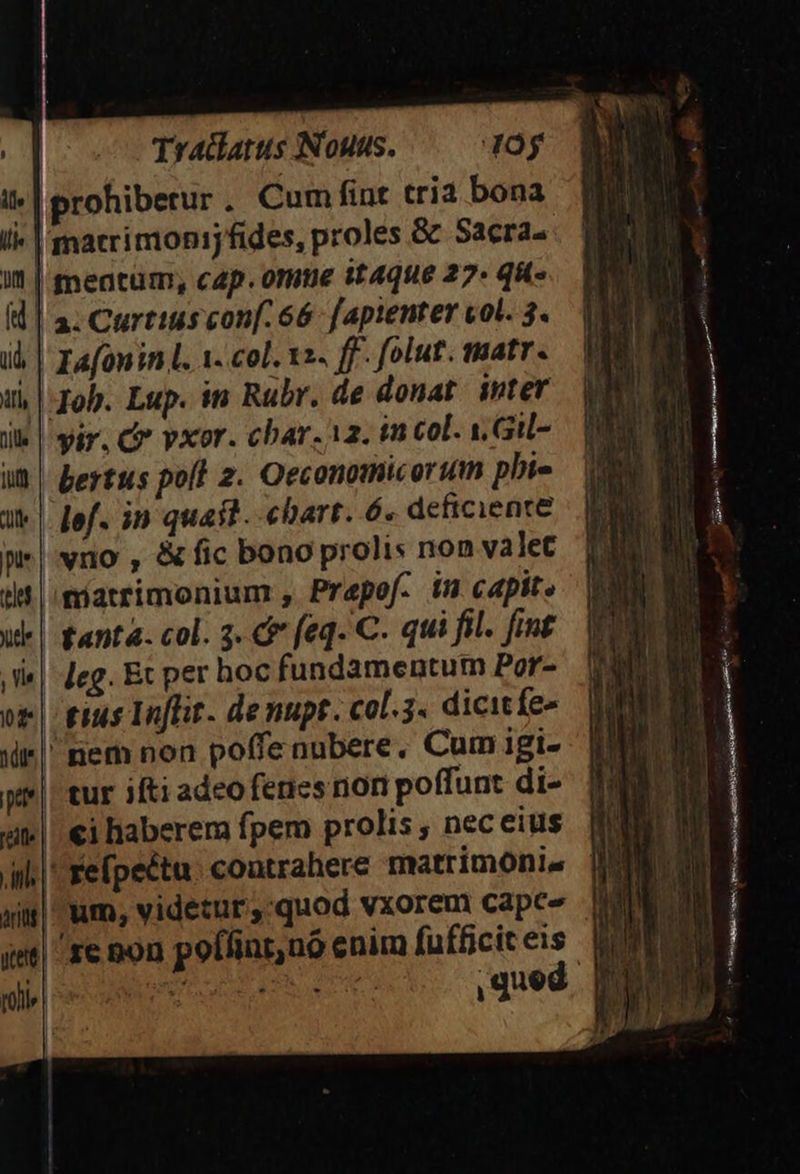 Tractatus Nouus. 105
prohibetur . Cum ſint tria bona
matrimonij fides, proles & Sacra-
mentum, cap. omne itaque 27. qu-
a. Curtius conſ. 66 ſapienter vol. 3.
Iaſon in l. 1. col. 12. ff. ſolut. matr.
Iob. Lup. in Rubr. de donat inter
vir. & vxor. char. 12. in col. 1. Gil-
bertus poſt 2. Oeconomicorum phi-
loſ. in quæſt. chart. 6. deficiente
vno , & ſic bono prolis non valet
matrimonium , Præpoſ. in capit.
tanta. col. 3. & ſeq. C. qui fil. ſint
leg. Et per hoc fundamentum Por-
tius Inſtit. de nupt. col. 3. dicit ſe-
nem non poſſe nubere. Cum igi-
tur iſti adeo ſenes non poſſunt di-
ci haberem ſpem prolis, nec eius
reſpectu contrahere matrimoni-
um, videtur, quod vxorem cape-
re non poſſint, nó enim ſufficit eis
, quod